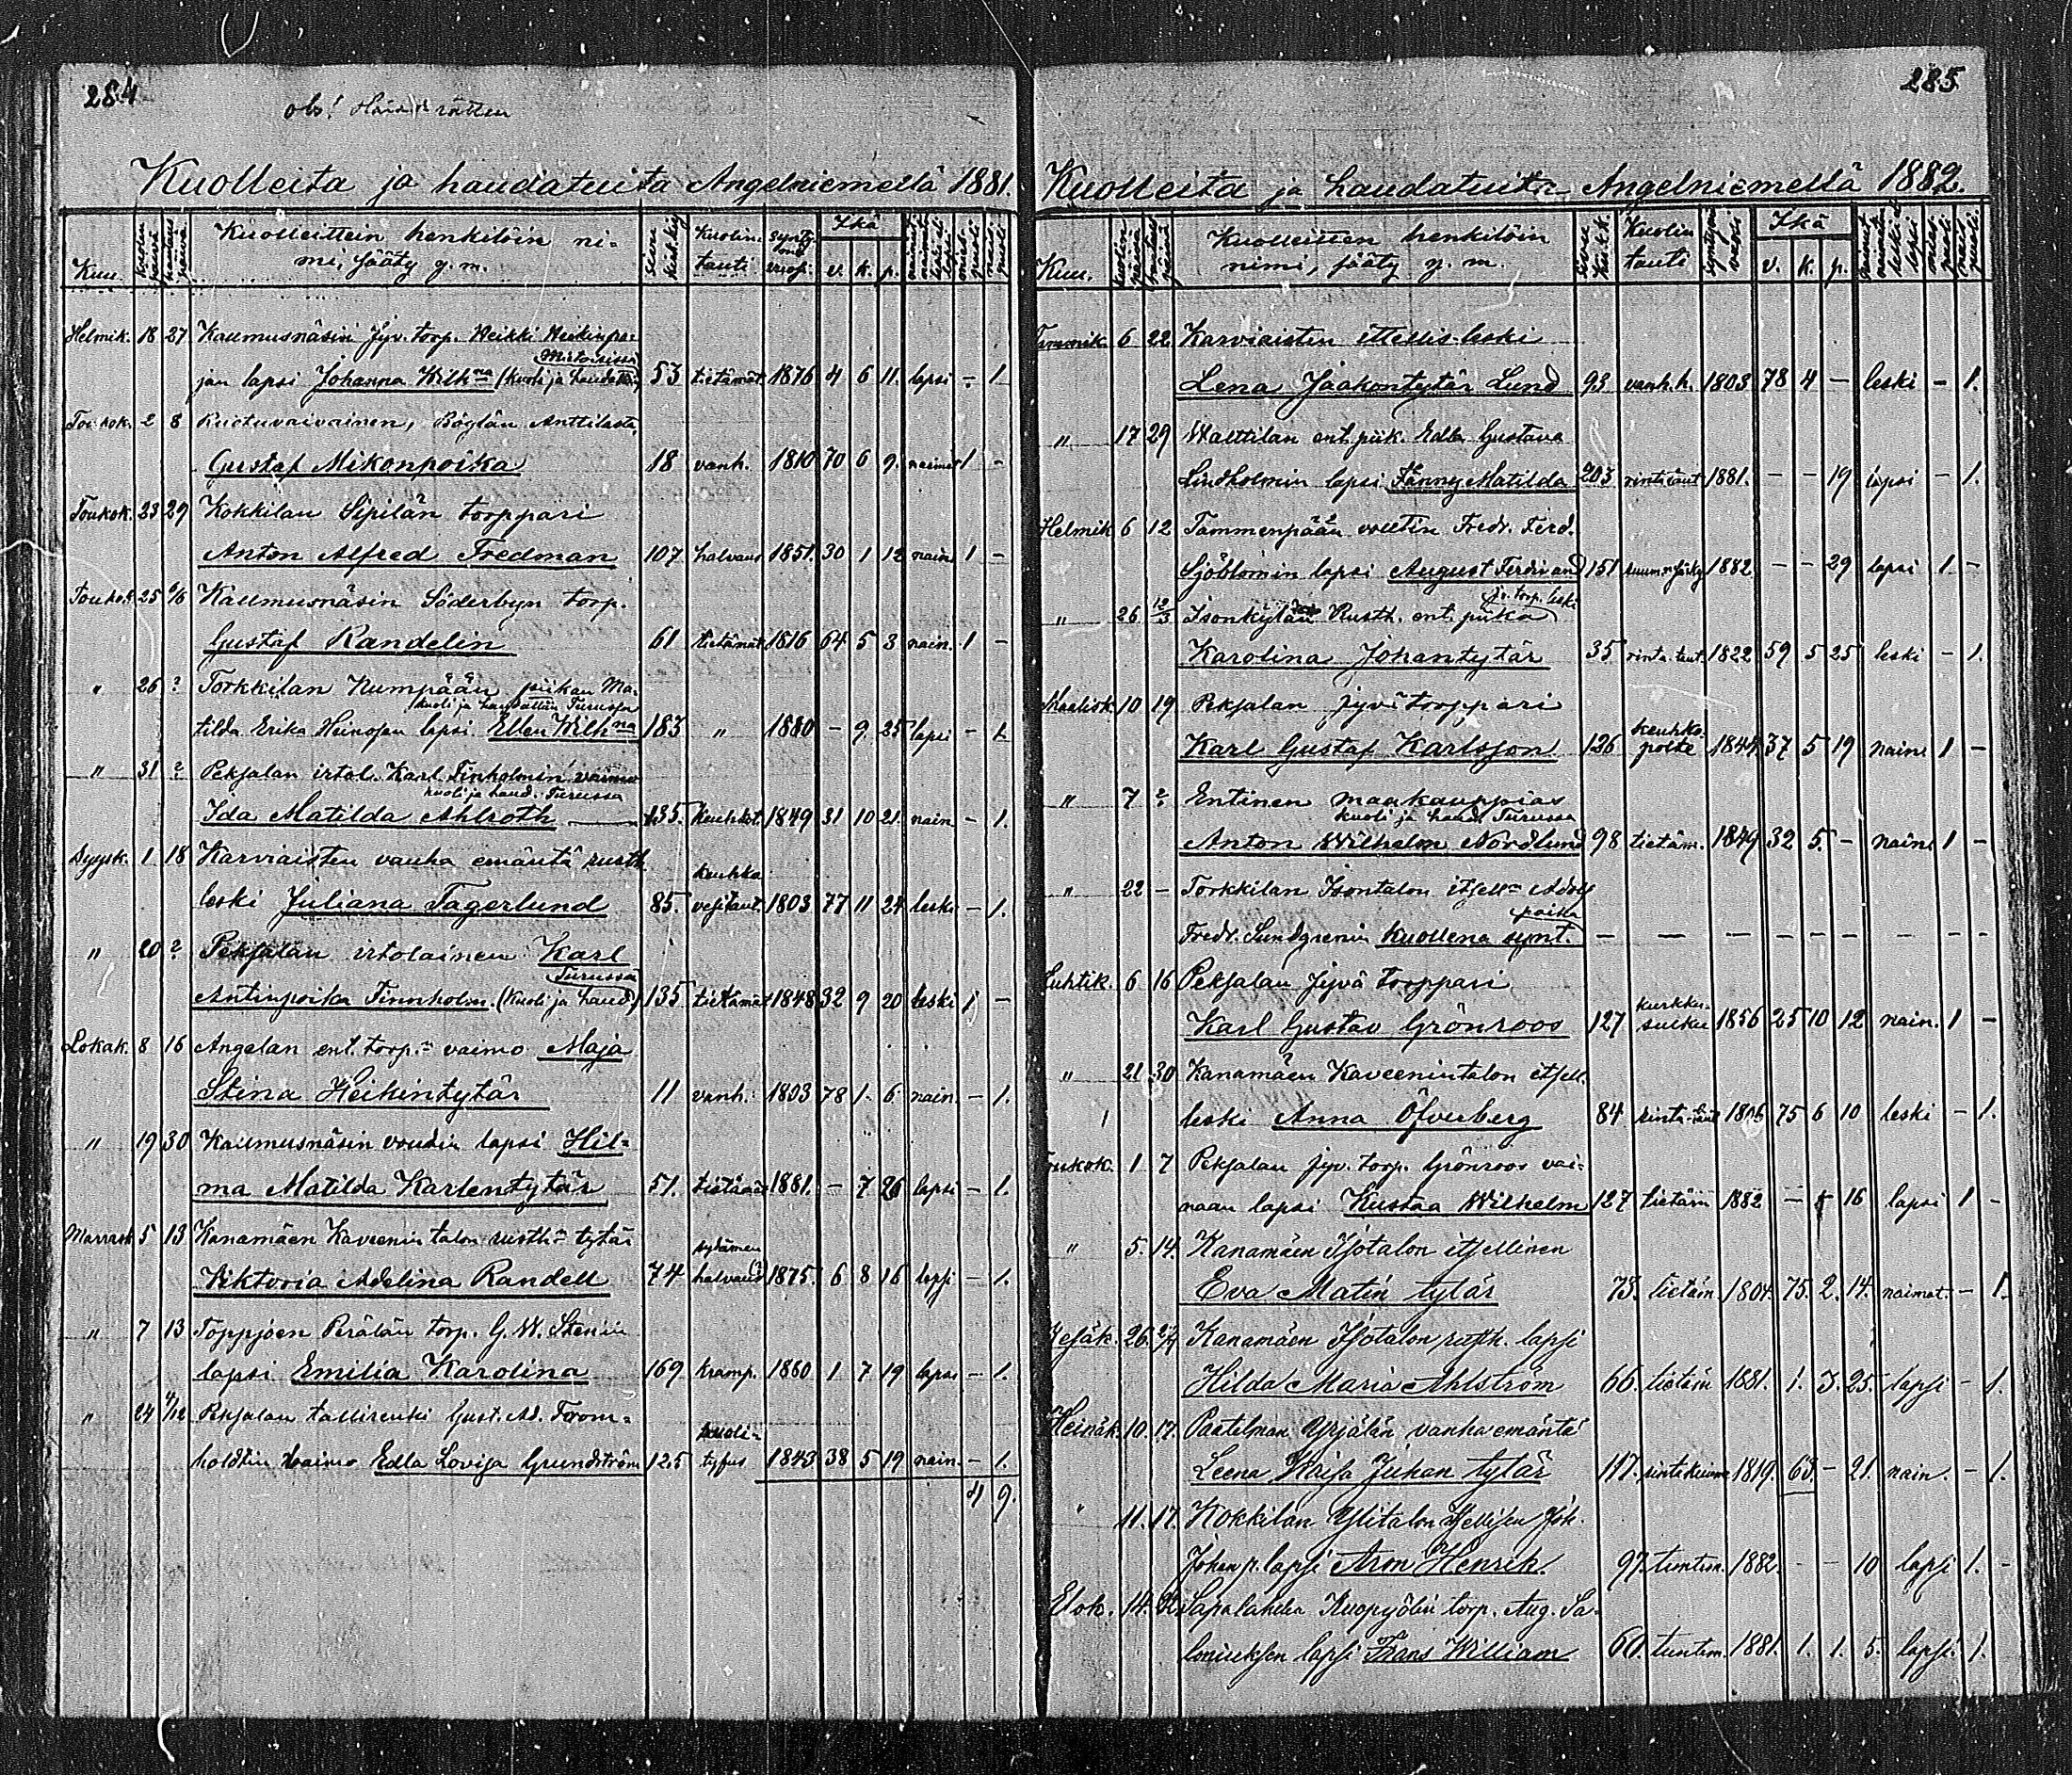 284
obs!
Kuolleita ja haudatuita Angelniemellä 1881.
Kuu. Kuolleitten henkilöin ni-
mi, sääty y. m. Kuolin- tauti synty- vuosi Ikä v. k. p.
Helmik. 18 27 Kaumusnäsin Jyv. torp. Heikki Heikinpo-
Mietoisissa
jan lapsi Johanna Wilhna (kuoli ja haudattiin) 53 tietämät. 1876 4 6 11. lapsi - 1
Toukok. 2 8 Ruotuvaivainen, Böglän Anttilasta,
Gustaf Mikonpoika 18 vanh. 1810 70 6 9. naimat 1 -
Toukok. 23 29 Kokkilan Sipilän torppari
Anton Alfred Fredman 107 halvaus 1851. 30 1 12 nain. 1 -
Toukok. 25 6/6 Kaumusnäsin Söderbyn torp.
Gustaf Randelin 61 tietämät. 1816 64 5 3 nain. 1 -
" 26 ? Torkkilan Numpään piikan Ma-
kuoli ja haudattiin Turussa
tilda Erika Heinosen lapsi Ellen Wilhna 183 " 1880 - 9 25 lapsi - 1
" 31 ? Peksalan irtol. Karl Finholmin vaimo
kuoli ja haud. Turussa
Ida Matilda Ahlroth 135. Keuhkot. 1849 31 10 21. nain. - 1.
Syysk. 1 18 Karviaisten vanha emäntä rusth.
keuhko
leski Juliana Fagerlund 85. vesitaut. 1803 77 11 24 leski - 1.
" 20 ? Peksalan irtolainen Karl
Turussa
Antinpoika Finnholm. (kuoli ja haud.) 135 tietämät 1848 32 9 20 leski 1 -
Lokak. 8 16 Angelan ent. torp.n vaimo Maja
Stina Heikintytär 11 vanh. 1803 78 1 6 nain. - 1.
" 19 30 Kaumusnäsin voudin lapsi Hil-
ma Matilda Karlentytär 51. tietämät 1881. - 7 26 lapsi - 1.
Marrask 5 13 Kanamäen Kaveenin talon rusth.n tytär
sydämen
Viktoria Adelina Randell 74 halvaus 1875. 6 8 16 lapsi - 1.
" 7 13 Toppjoen Perälän torp. G. W. Stenin
lapsi Emilia Karolina 169 kramp. 1880 1 7 19 lapsi - 1.
" 24 4/12 Peksalan tallirenki Gust. Ad. From-
kuoli-
holdtin vaimo Edla Lovisa Grundström 125 tyfus 1843 38 5 19 nain. - 1.
4 9.
285
Kuolleita ja haudatuita Angelniemellä 1882.
Kuu. Kuolleitten henkilöin
nimi, sääty y. m. Kuolin tauti Ikä v. k. p.
Tammik 6 22 Karviaisten ittellis-leski
Lena Jaakontytär Lund 93. vanh.h. 1803 78 4 - leski - 1.
" 17 29 Walttilan ent. piik. Edla Gustava
Lindholmin lapsi Fanny Matilda 203 rintataut 1881. - - 19 lapsi - 1.
Helmik 6 12 Tammenpään voutin Fredr. Ferd.
Sjöblomin lapsi August Ferdinand 151 1882 - - 29 lapsi 1. -
jv. torp. leski
" 26 12/3 Isonkylän Rusth. ent. piika
Karolina Johantytär 35 rinta taut. 1822 59 5 25 leski - 1.
Maalisk 10 19 Peksalan Jyvä torppari
keuhko-
Karl Gustaf Karlsson 126 polte 1844 37 5 19 nain. 1 -
" 7 ? Entinen maakauppias
kuoli ja haud. Turussa
Anton Wilhelm Nordlund 98 tietäm. 1849 32 5. - nain. 1 -
" 22 - Torkkilan Isontalon itsell.n Adolf
poika
Fredr. Sundgrenin kuollena synt. - - - - - - - - -
Huhtik. 6 16 Peksalan Jyvä torppari
kurkku-
Karl Gustav Grönroos 127 sulku 1856 25 10 12 nain. 1 -
" 21 30 Kanamäen Kaveenintalon itsell.
leski Anna Öfverberg 84 rinta-taut 1806 75 6 10 leski - 1.
Toukok. 1 7 Peksalan Jyv. torp. Grönroos vai-
naan lapsi Kustaa Wilhelm 127 tietäm 1882 - 16 lapsi 1 -
" 5. 14. Kanamäen Isotalon itsellinen
Eva Matin tytär 73. tietäm. 1804. 75. 2. 14. naimat. - 1.
Kesäk. 26. 2/7 Kanamäen Isotalon rusth. lapsi
Hilda Maria Ahlström 66. tietäm 1881. 1. 3. 25. lapsi - 1.
Heinäk. 10. 17. Paatelman Yrjälän vanha emäntä
Leena Kaisa Juhan tytär 117. 1819. 63. - 21. nain. - 1.
" 11. 17. Kokkilan Ylitalon itsellisen Joh.
Johanp. lapsi Aron Henrik. 97. tuntem. 1882. - - 10 lapsi 1. -
Elok. 14. Sapalahden Kuopyölin torp. Aug. Sa-
loniuksen lapsi Frans William 60. tuntem. 1881. 1. 1. 5. lapsi. 1.